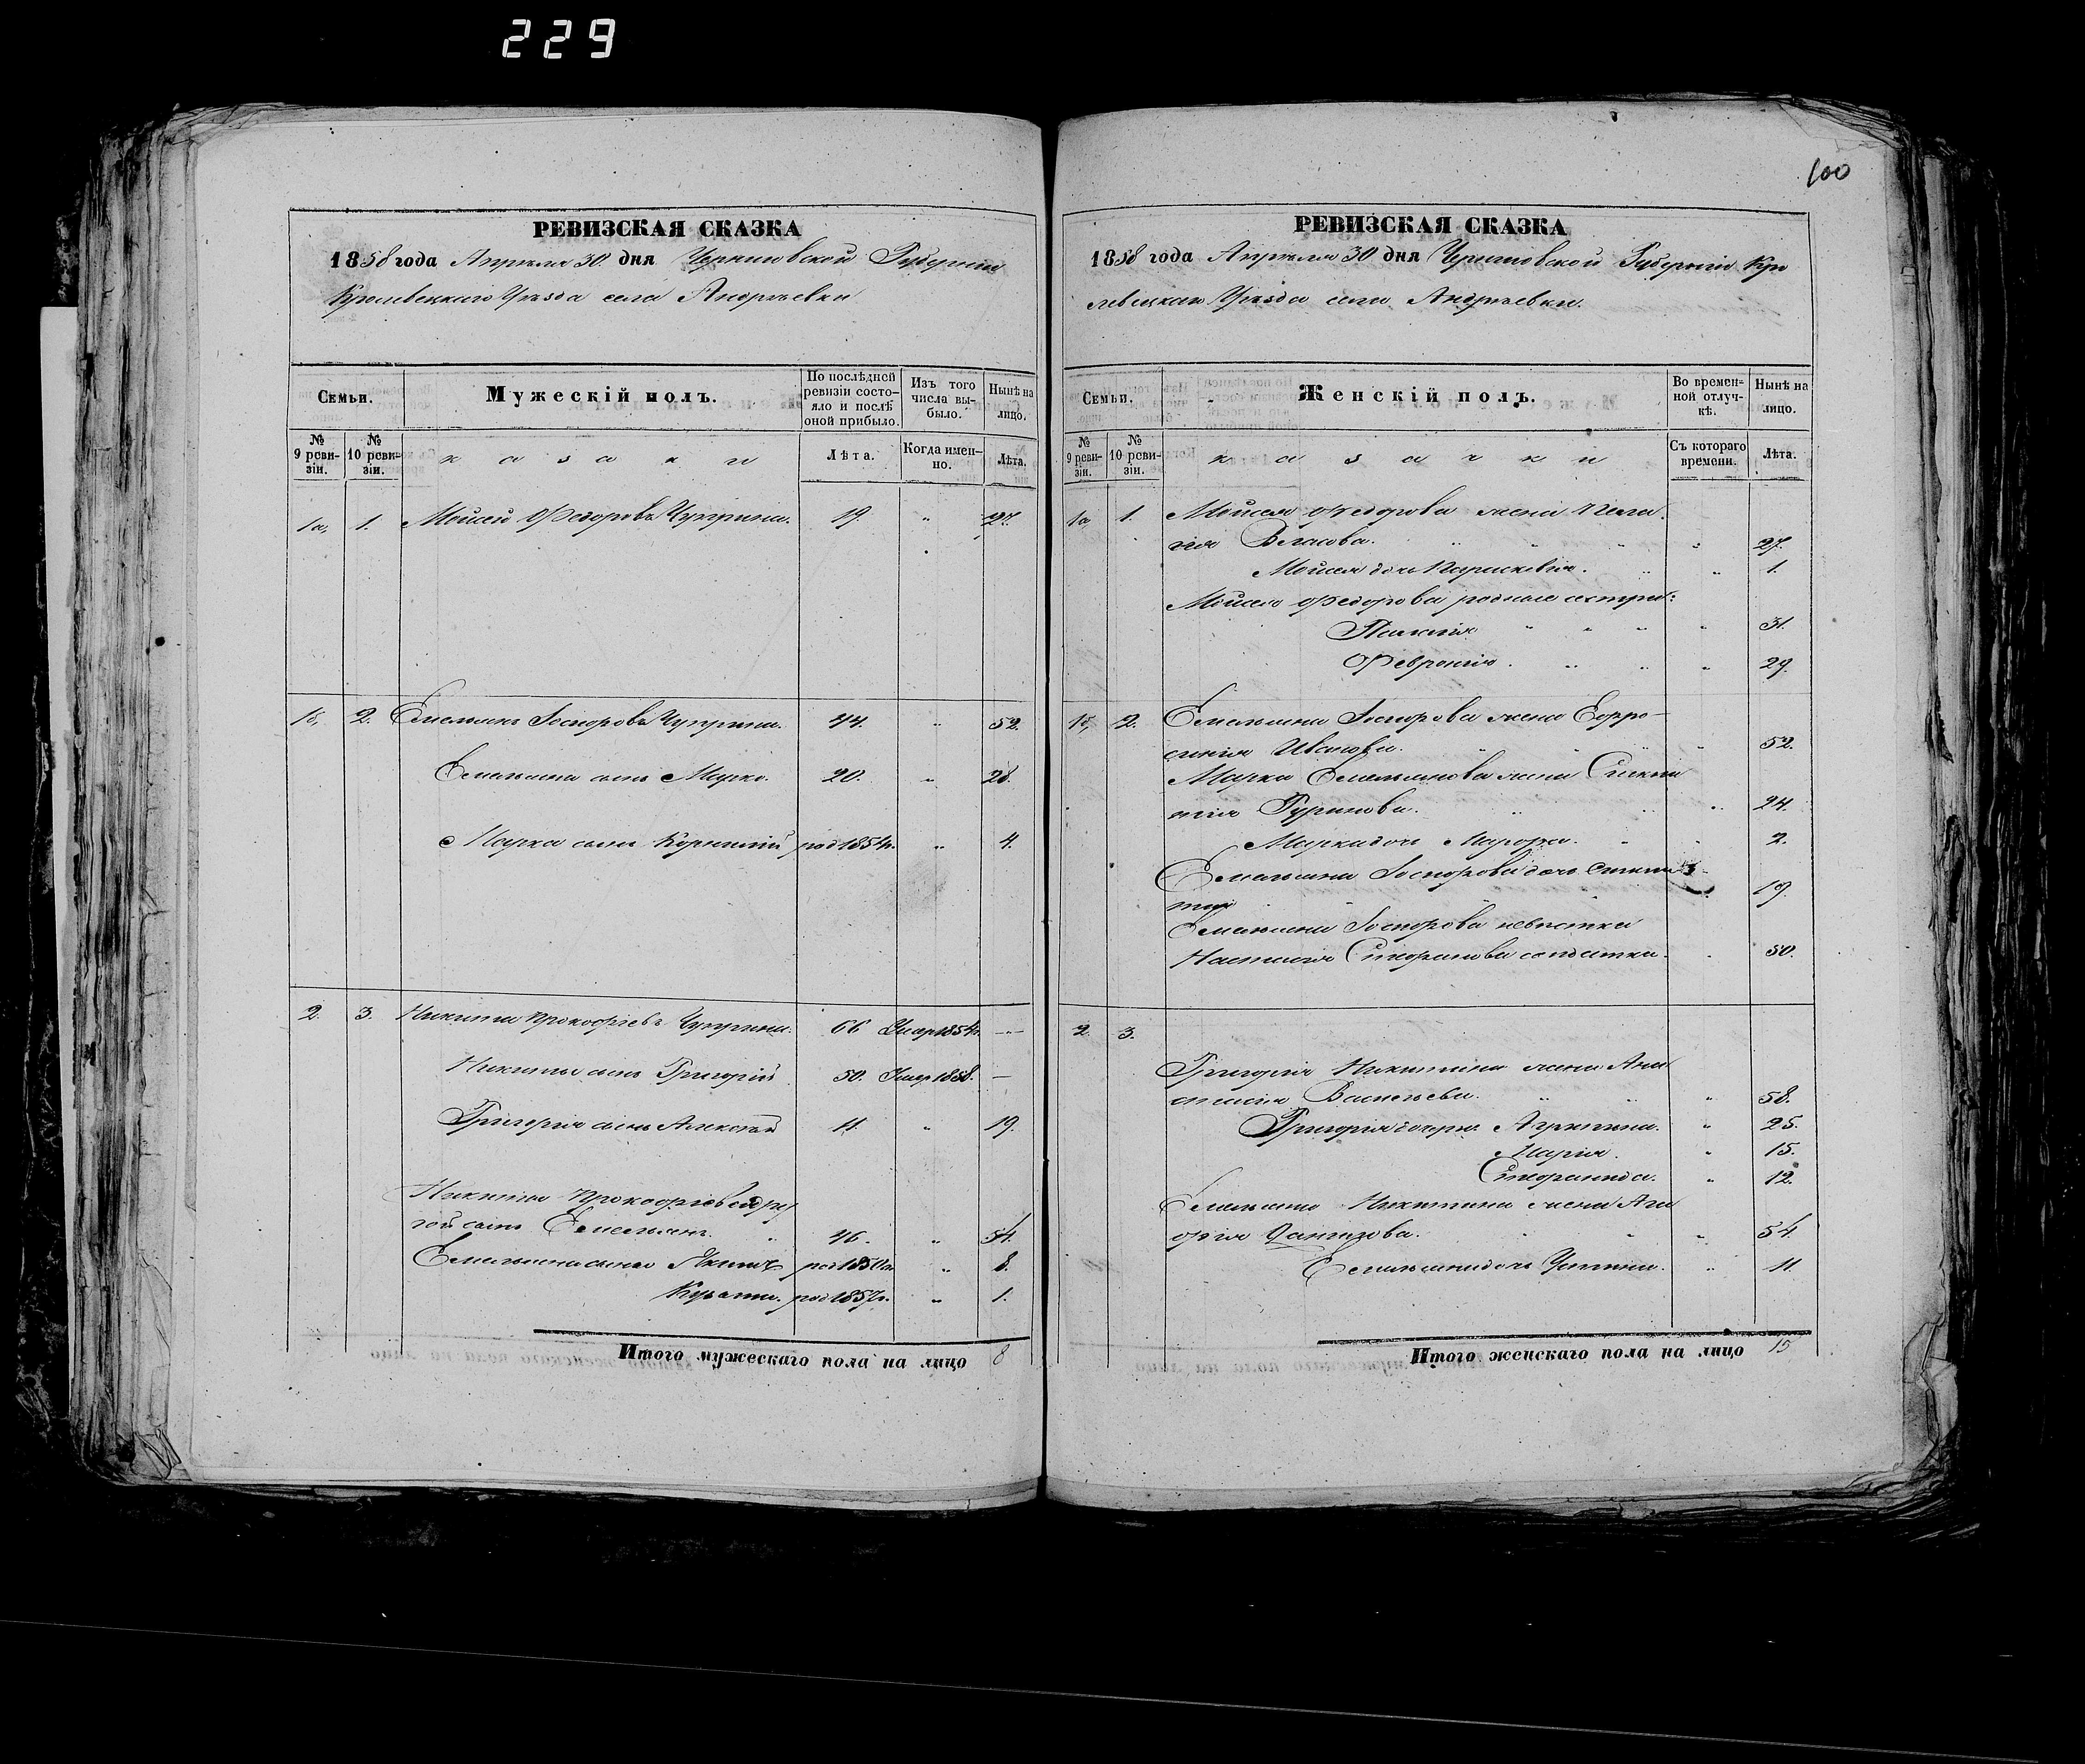 229
РЕВИЗСКАЯ СКАЗКА
1858 года Апреля 30. дня Черниговской Губернии
Кролевецкаго Уѣзда села Андреевки
Семьи.
Мужескій полъ.
По послѣдней ревизіи состояло и послѣ оной прибыло.
Изъ того числа выбыло.
Нынѣ на лицо.
№ 9 ревизіи.
№ 10 ревизіи.
казаки
Лѣта.
Когда именно.
Лѣта.
1а, 1. Мойсей Федоровъ Чуприна. 19. " 27.
1б, 2. Емельянъ Чуприна. 44. " 52.
Емельяна сынъ Марко. 20. " 28.
Марка сынъ Корнилій род 1854г. " 4.
2. 3. Никита Прокофіевъ Чуприна. 66 Умер 1854г. —
Никиты сынъ Григорій 50. Умер 1858. —
Григорія сынъ Алексѣй 11 " 19.
Никиты Прокофіева дру
гой сынъ Емельянъ. 46. " 54.
Емельяна сыны род 1850г. " 8.
Кузьма. род 1857г. " 1.
Итого мужескаго пола на лицо 8
100
РЕВИЗСКАЯ СКАЗКА
1858 года Апреля 30 дня Черниговской Губерніи Кро
левецкаго Уѣзда села Андреевки.
Семьи.
Женскій полъ.
Во временной отлучкѣ.
Нынѣ на лицо.
№ 9 ревизіи.
№ 10 ревизіи.
казачки
Съ котораго времени.
Лѣта.
1а, 1. Мойсея Федорова жена Пела
гія Власова. " 27.
Мойсея дочь Параскевія. " 1.
Мойсея Федорова родные сестры:
" 31.
Февронія. " 29.
1б, 2. Емельяна жена Евфро-
синія Иванова. " 52.
Марка Емельянова жена
Гуринова. " 24.
Марка дочь Марфа. " 2.
Емельяна дочь
19.
Емельяна невѣстка
Настасія Стефанова солдатка. 50.
2. 3.
Григорія Никитина жена Ана
стасія Васильева. " 58.
Григорія дочери: Агрипина. " 25.
Марія. " 15.
Стефанида. " 12.
Емельяна Никитина жена Ага
фія " 54
Емельяна дочь Устина. " 11.
Итого женскаго пола на лицо 15